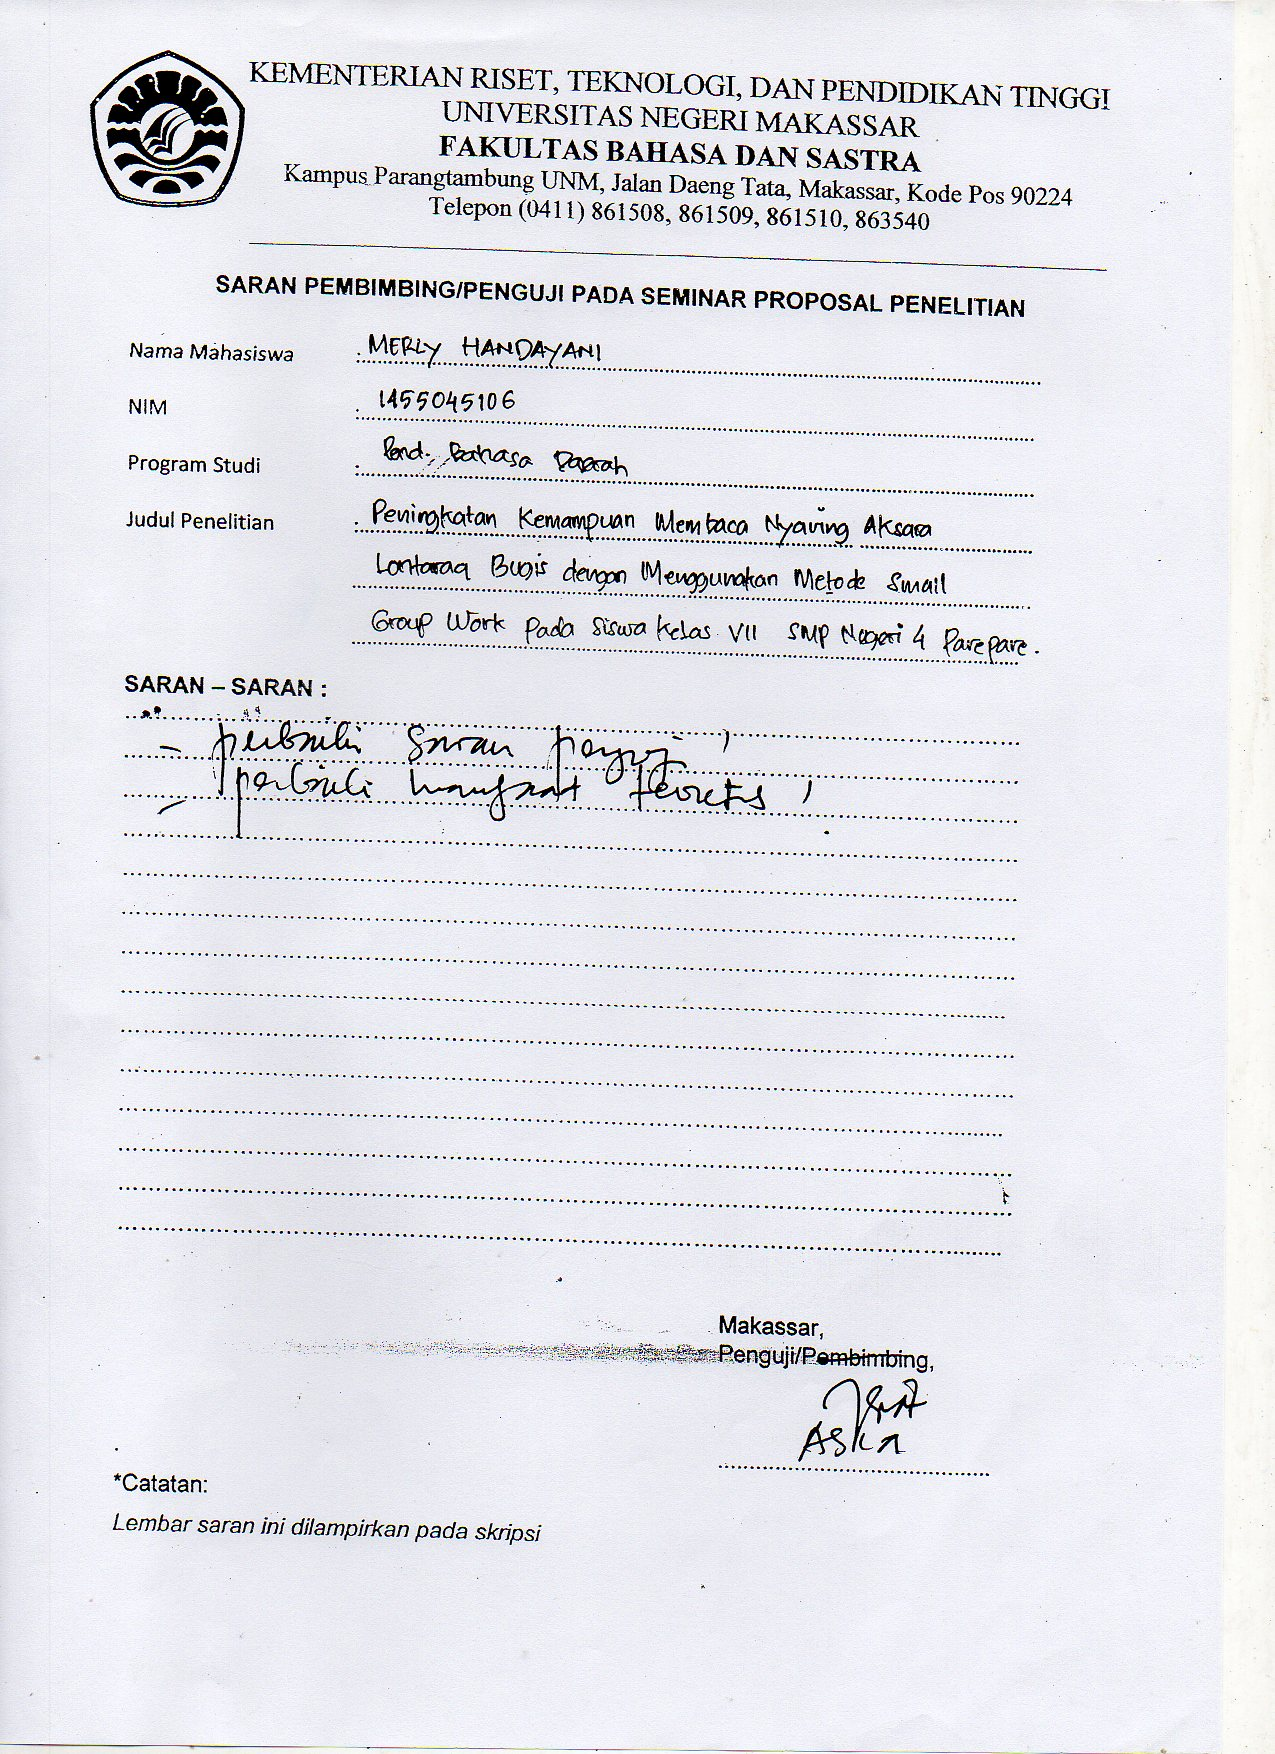 KEMENTERIAN RISET, TEKNOLOGI, DAN PENDIDIKAN TINGGI
UNIVERSITAS NEGERI MAKASSAR
FAKULTAS BAHASA DAN SASTRA
Kampus Parangtambung UNM, Jalan Daeng Tata, Makassar, Kode Pos 90224
Telepon (0411) 861508, 861509, 861510, 863540
SARAN PEMBIMBING/PENGUJI PADA SEMINAR PROPOSAL PENELITIAN
Nama Mahasiswa : MERLY HANDAYANI
NIM : 1455045106
Program Studi : Pend. Bahasa Daerah
Judul Penelitian : Peningkatan Kemampuan Membaca Nyaring Aksara
Lontaraq Bugis dengan Menggunakan Metode Small
Group Work pada Siswa Kelas VII SMP Negeri 4 Parepare.
SARAN – SARAN :
- perbaiki saran penguji !
- perbaiki manfaat teoretis !
Makassar,
Penguji/Pembimbing,
ASKA
*Catatan:
Lembar saran ini dilampirkan pada skripsi